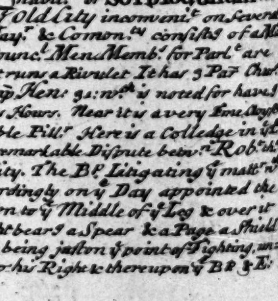 Old City inconveni.t on Severa
ay.s & Comon.ty consists of a Ma
ounc.l Men. Memb.s for Parl.t are
t runs a Rivulet. It has 3 Par. Chu
K. Hen: 3: noted for have
s Hours. Near it is a very
ble Pill.r Here is a Colledge in y.e
remarkable Dispute betw.n Rob.t
ity. The B.p Litigating y.e matt.r
rdingly on y.e Day appointed the
n to y.e Middle of y.e Leg & over it
ht bears a Spear & a Page a Shield
being just on y.e point of Fighting,
o his Right & thereupon y.e B